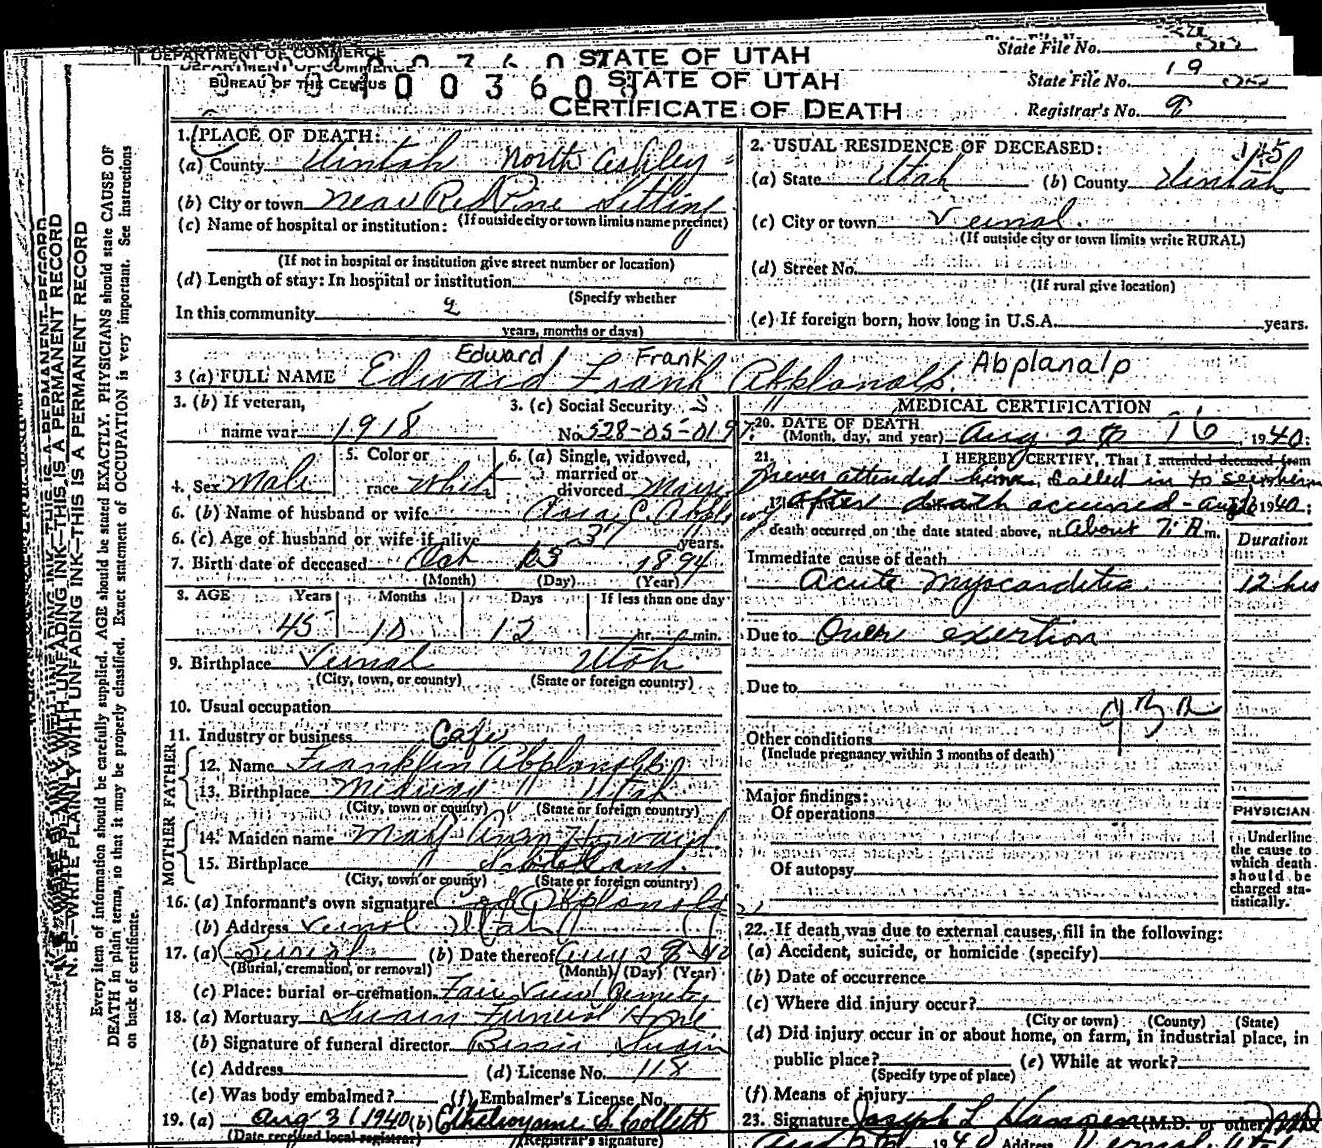 DEPARTMENT OF COMMERCE
STATE OF UTAH
State File No.
BUREAU OF THE CENSUS
STATE OF UTAH
State File No. 19
CERTIFICATE OF DEATH
Registrar's No. 9
N. B.—WRITE PLAINLY WITH UNFADING INK—THIS IS A PERMANENT RECORD
Every item of information should be carefully supplied. AGE should be stated EXACTLY. PHYSICIANS should state CAUSE OF
DEATH in plain terms, so that it may be properly classified. Exact statement of OCCUPATION is very important. See instructions
on back of certificate.
1. PLACE OF DEATH:
(a) County Uintah North Ashley
(b) City or town Near Red Pine
(If outside city or town limits name precinct)
(c) Name of hospital or institution:
(If not in hospital or institution give street number or location)
(d) Length of stay: In hospital or institution
(Specify whether
In this community
years, months or days)
2. USUAL RESIDENCE OF DECEASED:
(a) State Utah (b) County Uintah
(c) City or town Vernal
(If outside city or town limits write RURAL)
(d) Street No.
(If rural give location)
(e) If foreign born, how long in U.S.A. years.
Edward Frank Abplanalp
3 (a) FULL NAME Edward Frank Abplanalp
3. (b) If veteran, name war 1918
3. (c) Social Security No. 528-05-019
4. Sex Male
5. Color or race White
6. (a) Single, widowed, married or divorced
6. (b) Name of husband or wife
6. (c) Age of husband or wife if alive 37 years.
7. Birth date of deceased 1894
(Month) (Day) (Year)
8. AGE Years Months Days If less than one day
45 10 12 hr. min.
9. Birthplace Vernal Utah
(City, town, or county) (State or foreign country)
10. Usual occupation
11. Industry or business Cafe
FATHER
12. Name Franklin Abplanalp
13. Birthplace Midway Utah
(City, town or county) (State or foreign country)
MOTHER
14. Maiden name Mary Ann Howard
15. Birthplace
(City, town or county) (State or foreign country)
16. (a) Informant's own signature Abplanalp
(b) Address Vernal Utah
17. (a) Burial (b) Date thereof
(Burial, cremation, or removal) (Month) (Day) (Year)
(c) Place: burial or cremation Fair View Cemetery
18. (a) Mortuary Swain Funeral Home
(b) Signature of funeral director Swain
(c) Address (d) License No. 118
(e) Was body embalmed? (f) Embalmer's License No.
19. (a) Aug 31 1940 (b) Collett
(Date received local registrar) (Registrar's signature)
MEDICAL CERTIFICATION
20. DATE OF DEATH
(Month, day, and year) Aug 1940;
21. I HEREBY CERTIFY, That I attended deceased from
never attended him, called in to see him
after death occurred 1940;
death occurred on the date stated above, at About 7 A m.
Duration
Immediate cause of death
Acute Myocarditis 12 hrs
Due to Over exertion
Due to
Other conditions
(Include pregnancy within 3 months of death)
Major findings:
Of operations
Of autopsy
PHYSICIAN
Underline
the cause to
which death
should be
charged sta-
tistically.
22. If death was due to external causes, fill in the following:
(a) Accident, suicide, or homicide (specify)
(b) Date of occurrence
(c) Where did injury occur?
(City or town) (County) (State)
(d) Did injury occur in or about home, on farm, in industrial place, in
public place? (e) While at work?
(Specify type of place)
(f) Means of injury
23. Signature Joseph L Hansen (M.D. or other) MD
Address Vernal